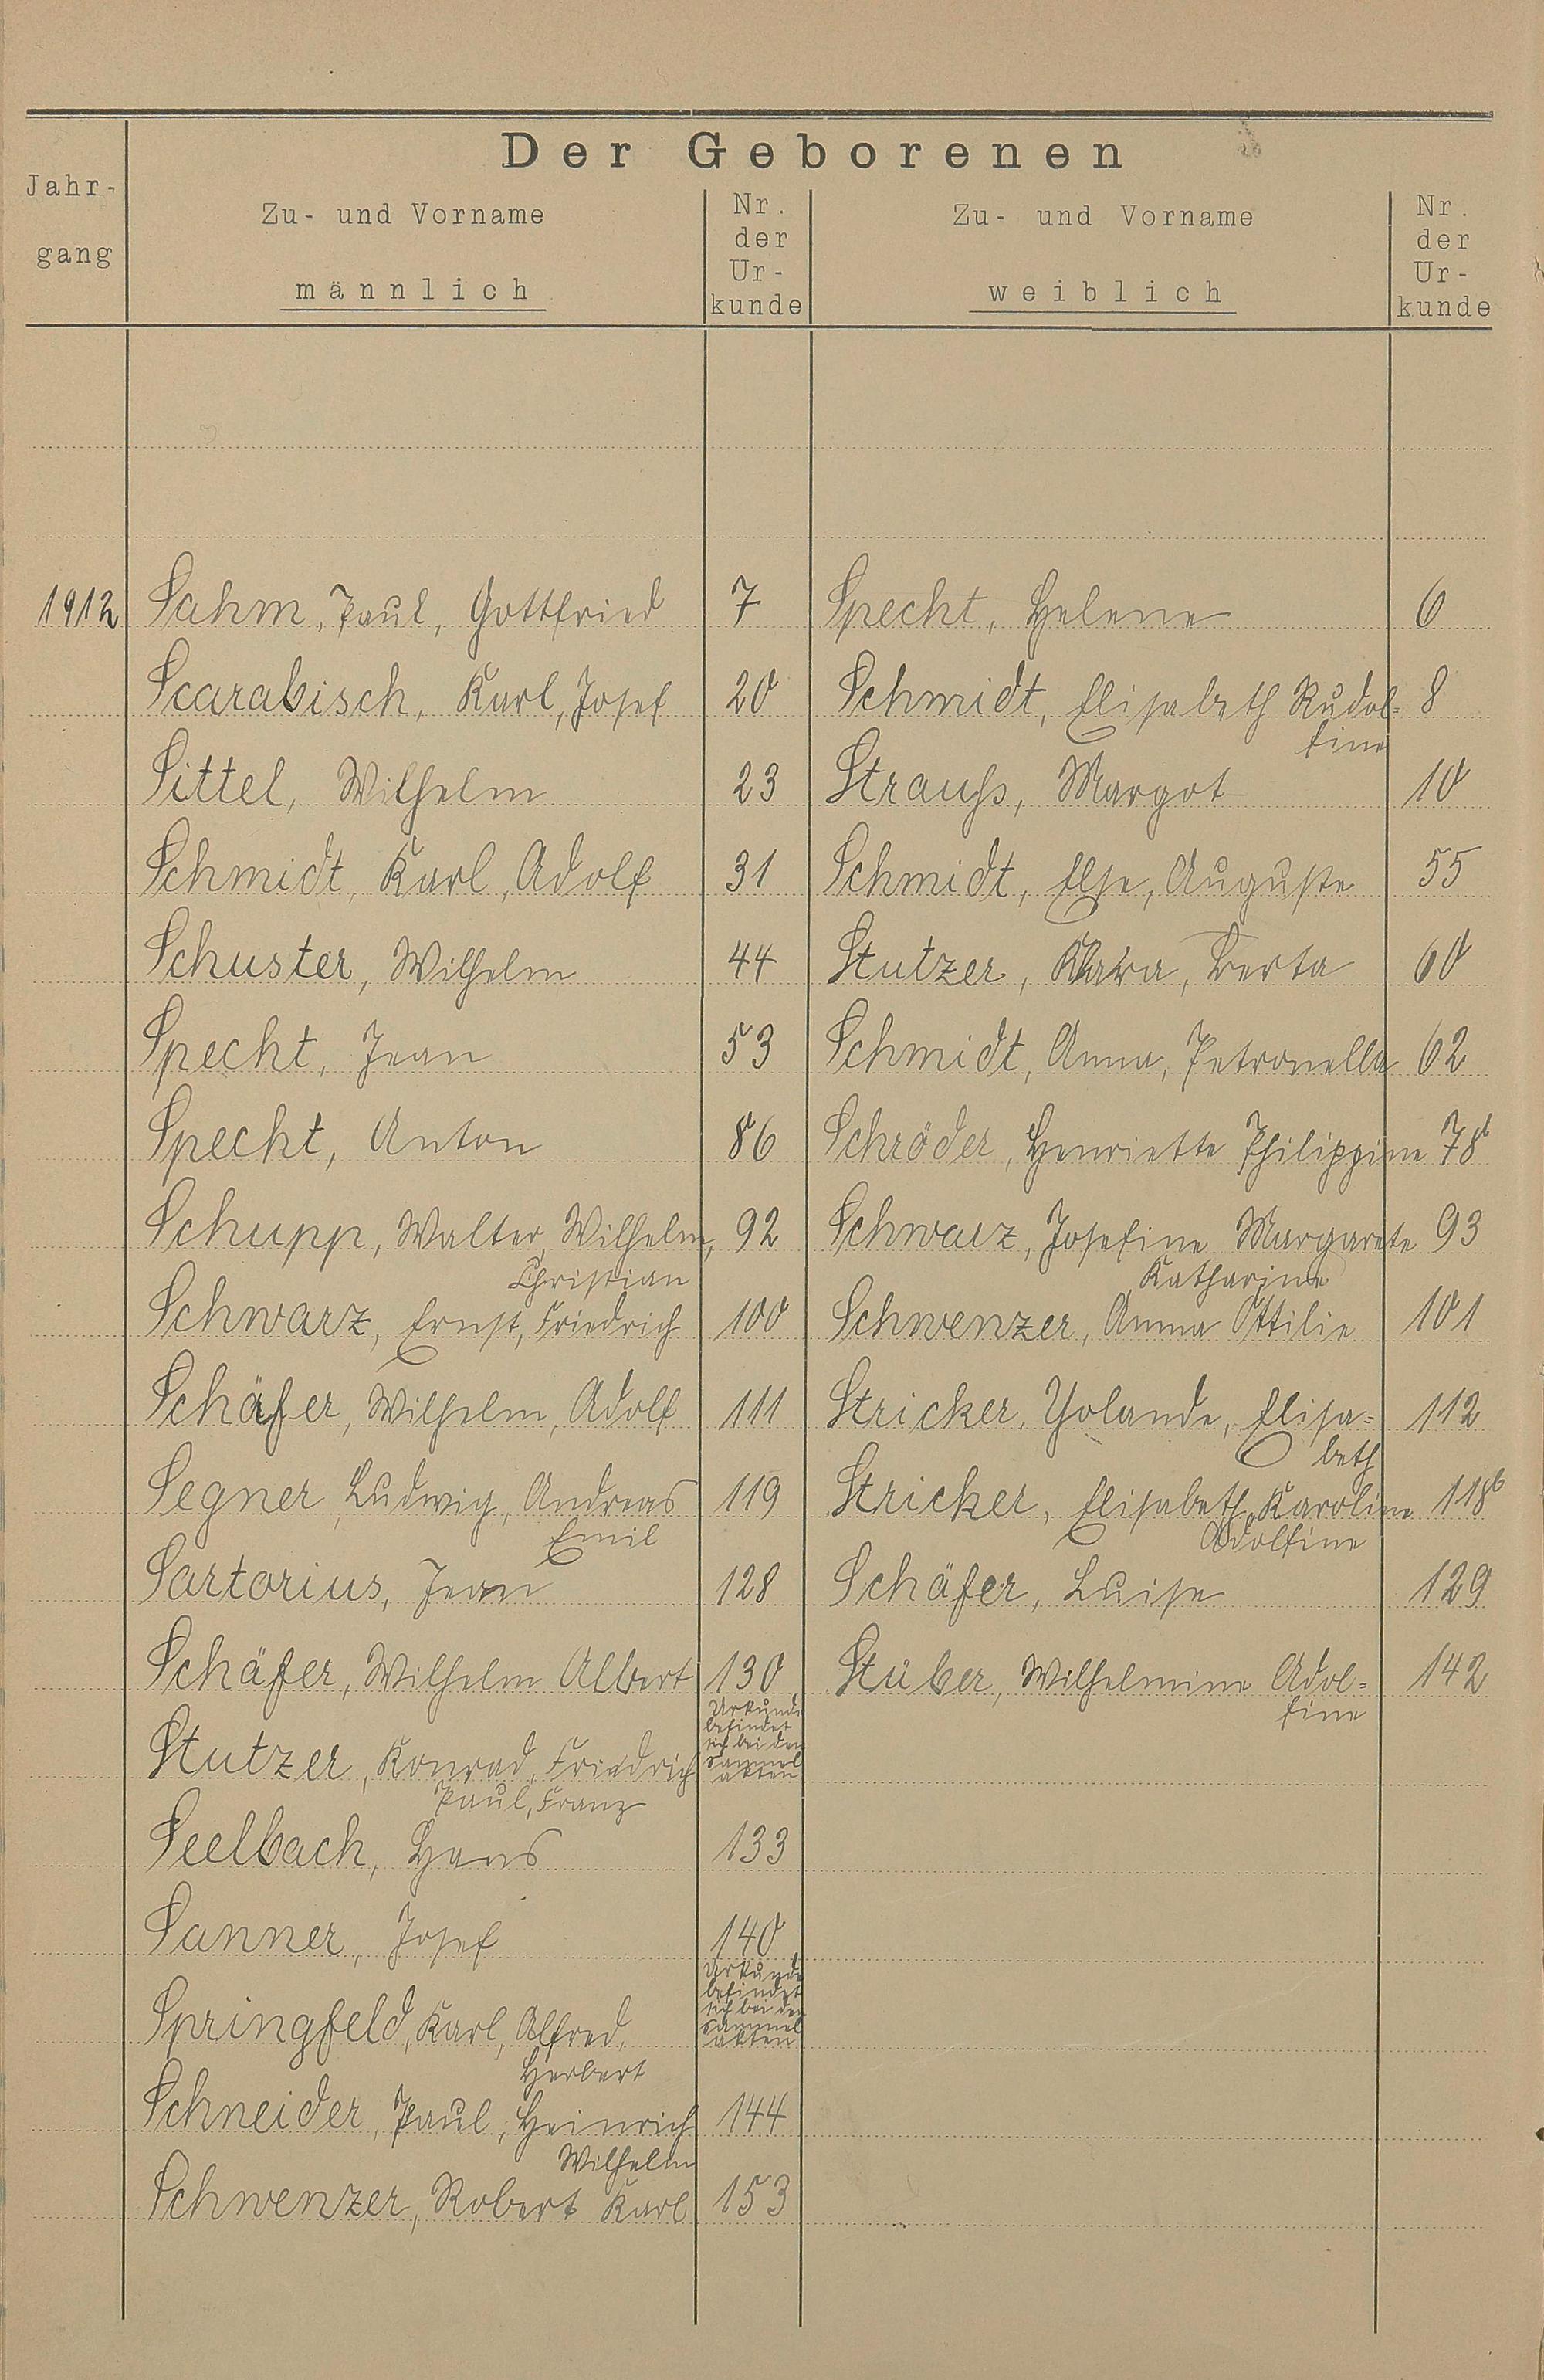 Der Geborenen
Jahr-
gang
Zu- und Vorname
männlich
Nr.
der
Ur-
kunde
Zu- und Vorname
weiblich
Nr.
der
Ur-
kunde
1912 Sahm, Paul, Gottfried 7 Specht, Helene 6
Scarabisch, Karl, Josef 20 Schmidt, Elisabeth Rudol= 8
fine
Sittel, Wilhelm 23 Strauß, Margot 10
Schmidt, Karl, Adolf 31 Schmidt, Else, Auguste 55
Schuster, Wilhelm 44 Stutzer, Klara, Berta 60
Specht, Jean 53 Schmidt, Anna, Petronella 62
Specht, Anton 86 Schröder, Henriette Philippine 78b
Schupp, Walter, Wilhelm, 92 Schwarz, Josefine Margarete 93
Christian Katharina
Schwarz, Ernst, Friedrich 100 Schwenzer, Anna Ottilie 101
Schäfer, Wilhelm, Adolf 111 Stricker, Yolande, Elisa= 112
beth
Segner, Ludwig, Andreas 119 Stricker, Elisabeth, Karoline 118b
Emil Adolfine
Sartorius, Jean 128 Schäfer, Luise 129
Schäfer, Wilhelm Albert 130 Stüber, Wilhelmine Adol= 142
fine
Stutzer, Konrad, Friedrich Urkunde
befindet
sich bei den
Sammel
akten
Paul, Franz
Seelbach, Hans 133
Sanner, Josef 140
Springfeld, Karl, Alfred, Urkunde
befindet
sich bei den
Sammel
akten
Herbert
Schneider, Paul, Heinrich 144
Wilhelm
Schwenzer, Robert Karl 153